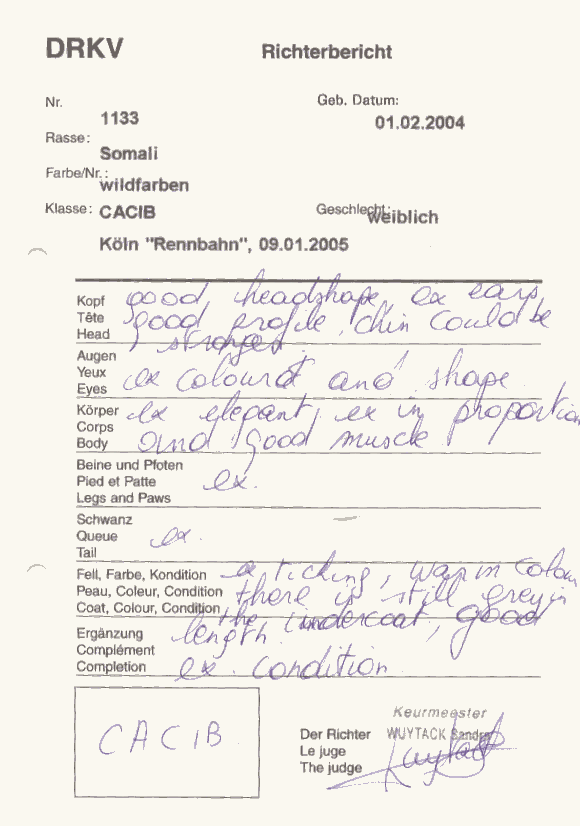 DRKV Richterbericht
Nr. Geb. Datum:
1133 01.02.2004
Rasse:
Somali
Farbe/Nr.:
wildfarben
Klasse: CACIB Geschlecht: weiblich
Köln "Rennbahn", 09.01.2005
Kopf good headshape, ex ears,
Tête good profile, chin could be
Head stronger.
Augen
Yeux
Eyes ex colour and shape
Körper ex elegant, ex in proportion
Corps
Body and good muscle
Beine und Pfoten
Pied et Patte ex.
Legs and Paws
Schwanz
Queue ex.
Tail
Fell, Farbe, Kondition ex ticking, warm colour
Peau, Couleur, Condition there is still grey in
Coat, Colour, Condition the undercoat, good
Ergänzung length.
Complément
Completion ex. condition
CACIB
Keurmeester
Der Richter WUYTACK Sandra
Le juge
The judge